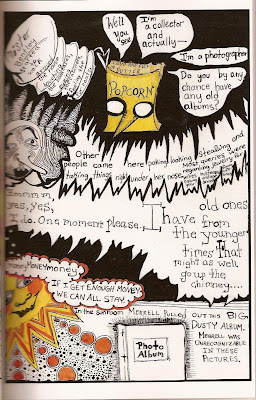 Well
you
see
I'm
a collector
and
actually—
I'm a photographer
Do you by any
chance have
any old
albums?
BUTTER
POPCORN
Other
people came here poking, looking, stealing and
taking things right under her nose
most queries were
regarding jewelry
Hmmm,
yes, yes,
I do. One moment please.
I have old ones
from
the younger
times that
might as well
go up the
chimney....
money MONEY money
IF I GET ENOUGH MONEY
WE CAN ALL STAY.
In the sunroom MERRELL PULLED OUT THIS BIG
DUSTY ALBUM.
MERRELL WAS
UNRECOGNIZABLE
IN THESE
PICTURES.
PHOTO
ALBUM